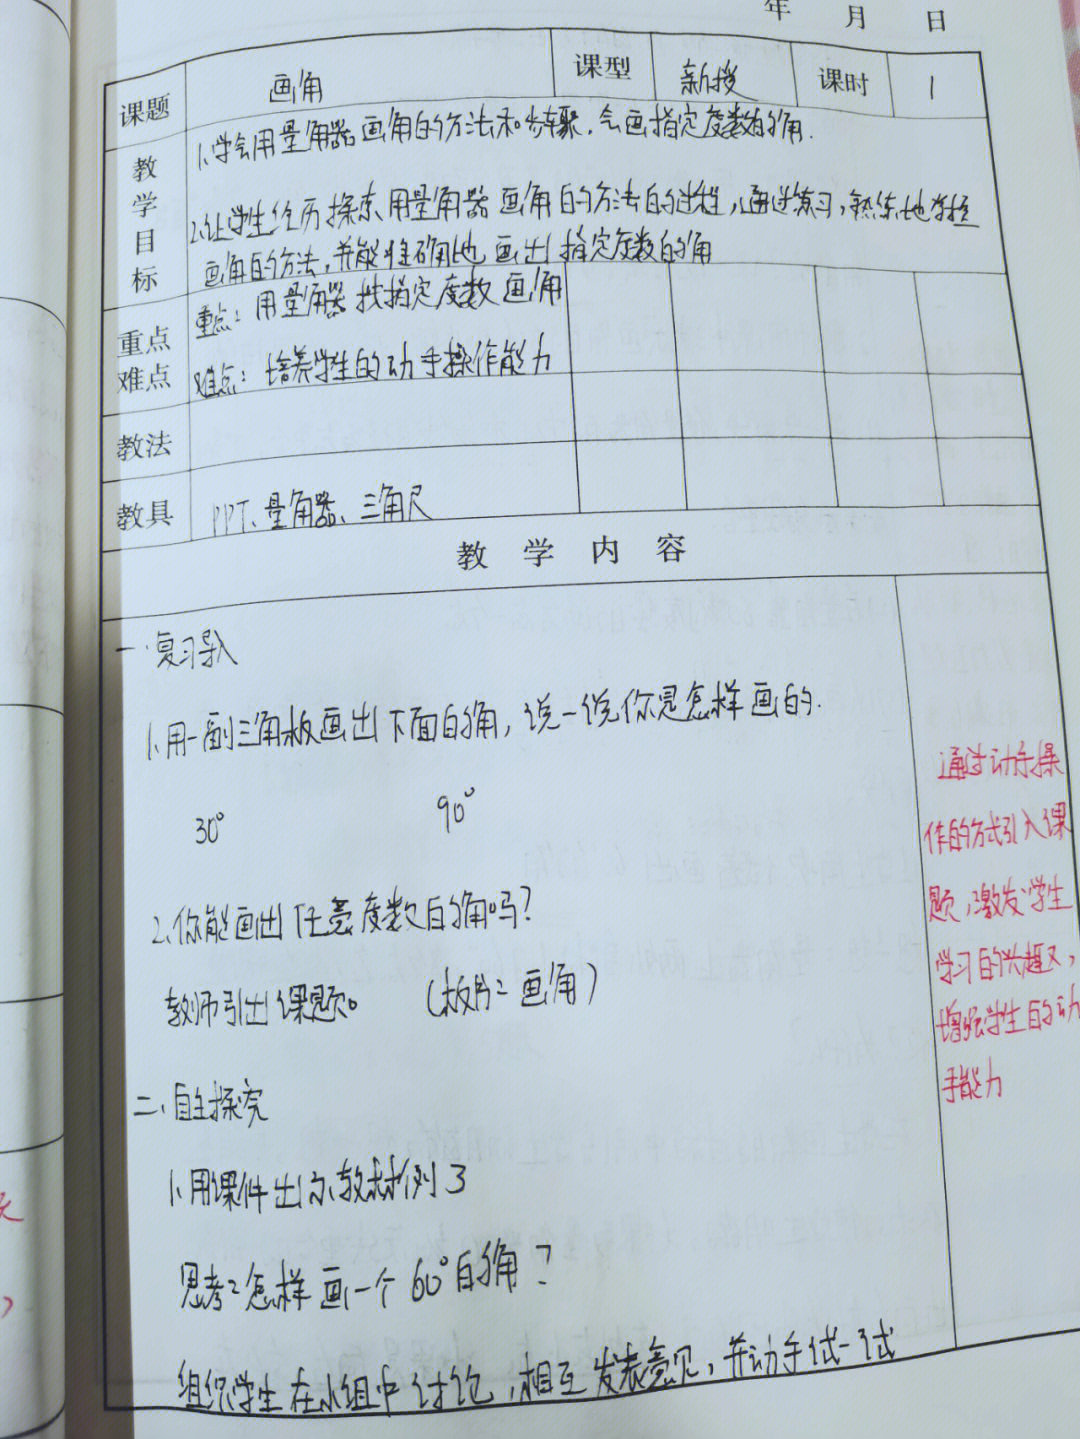 年 月 日
课题 画角 课型 新授 课时 1
教学目标
1.学会用量角器画角的方法和步骤.会画指定度数的角.
2.让学生经历探索用量角器画角的方法的过程,通过练习,熟练地掌握
画角的方法,并能准确地画出指定度数的角
重点难点
重点:用量角器按指定度数画角
难点:培养学生的动手操作能力
教法
教具 PPT、量角器、三角尺
教学内容
一.复习导入
1.用一副三角板画出下面的角,说一说你是怎样画的.
30° 90°
2.你能画出任意度数的角吗?
教师引出课题。 (板书:画角)
二、自主探究
1.用课件出示教材例3
思考:怎样画一个60°的角?
组织学生在小组中讨论,相互发表意见,并动手试一试
通过动手操
作的方式引入课
题,激发学生
学习的兴趣,
增强学生的动
手能力